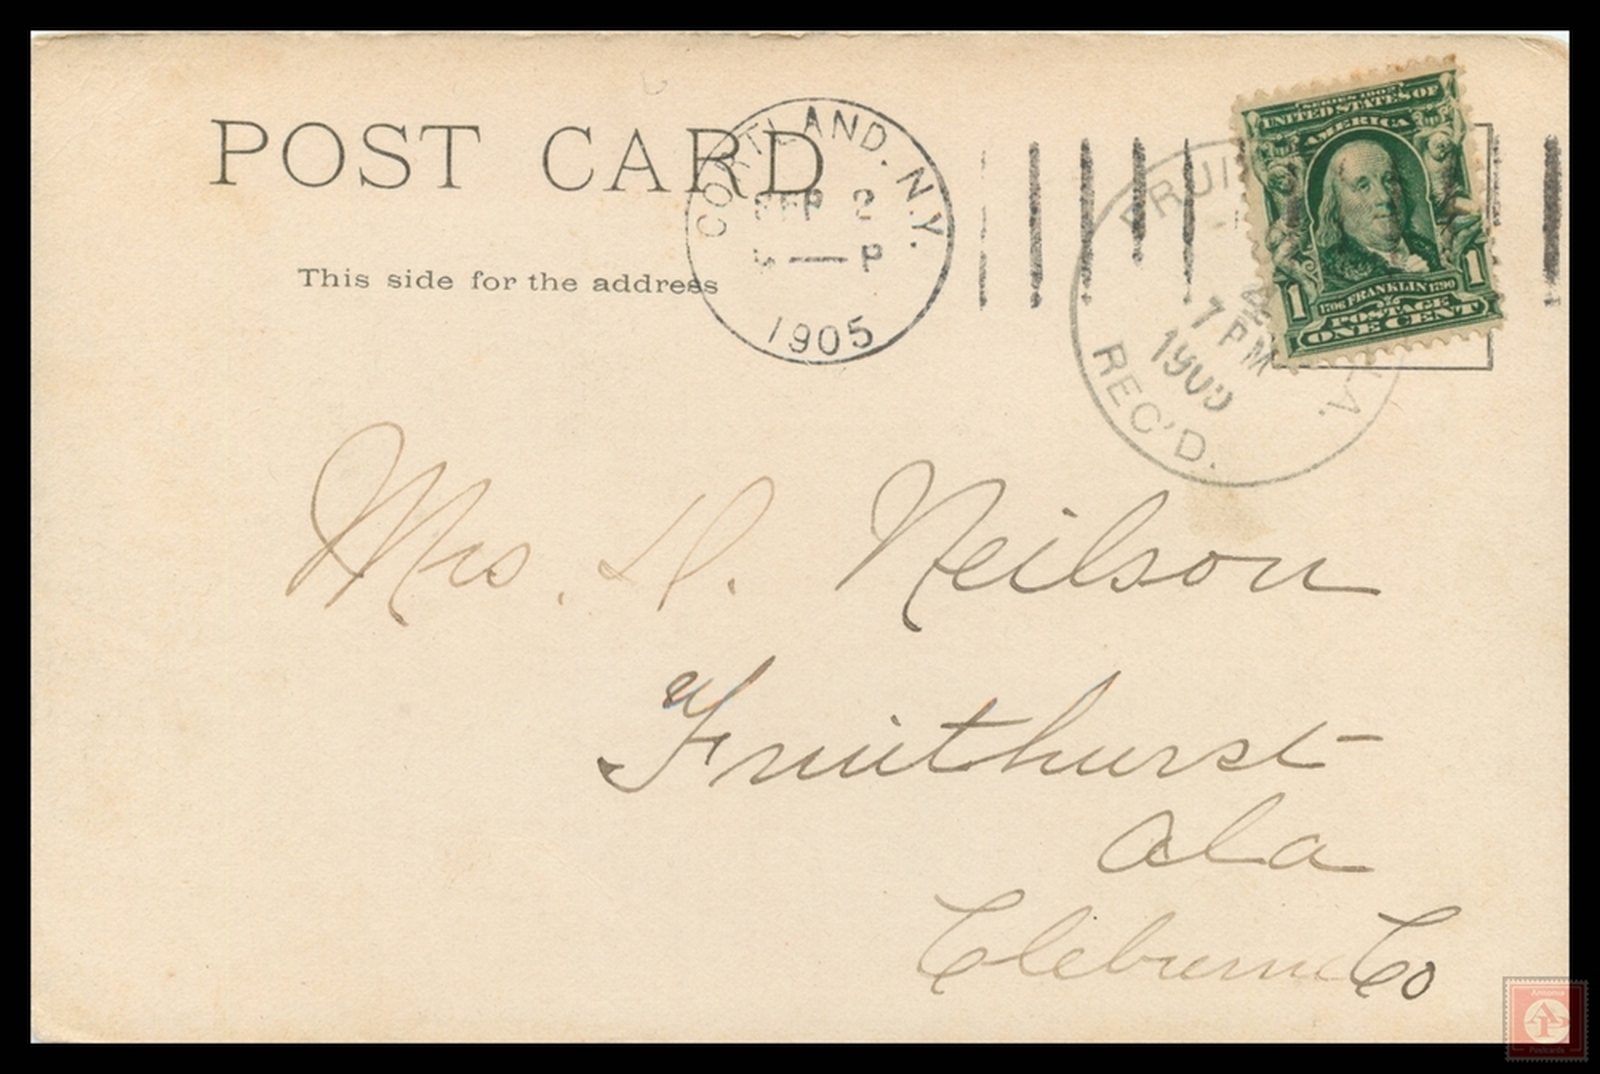 POST CARD
This side for the address
CORTLAND, N.Y.
SEP 2
— P
1905
SERIES 1902
UNITED STATES OF
AMERICA
1706 FRANKLIN 1790
1 POSTAGE 1
ONE CENT
7 PM
REC'D.
Mrs. D. Neilson
Fruithurst
Ala
Cleburne Co
AP
Postcards